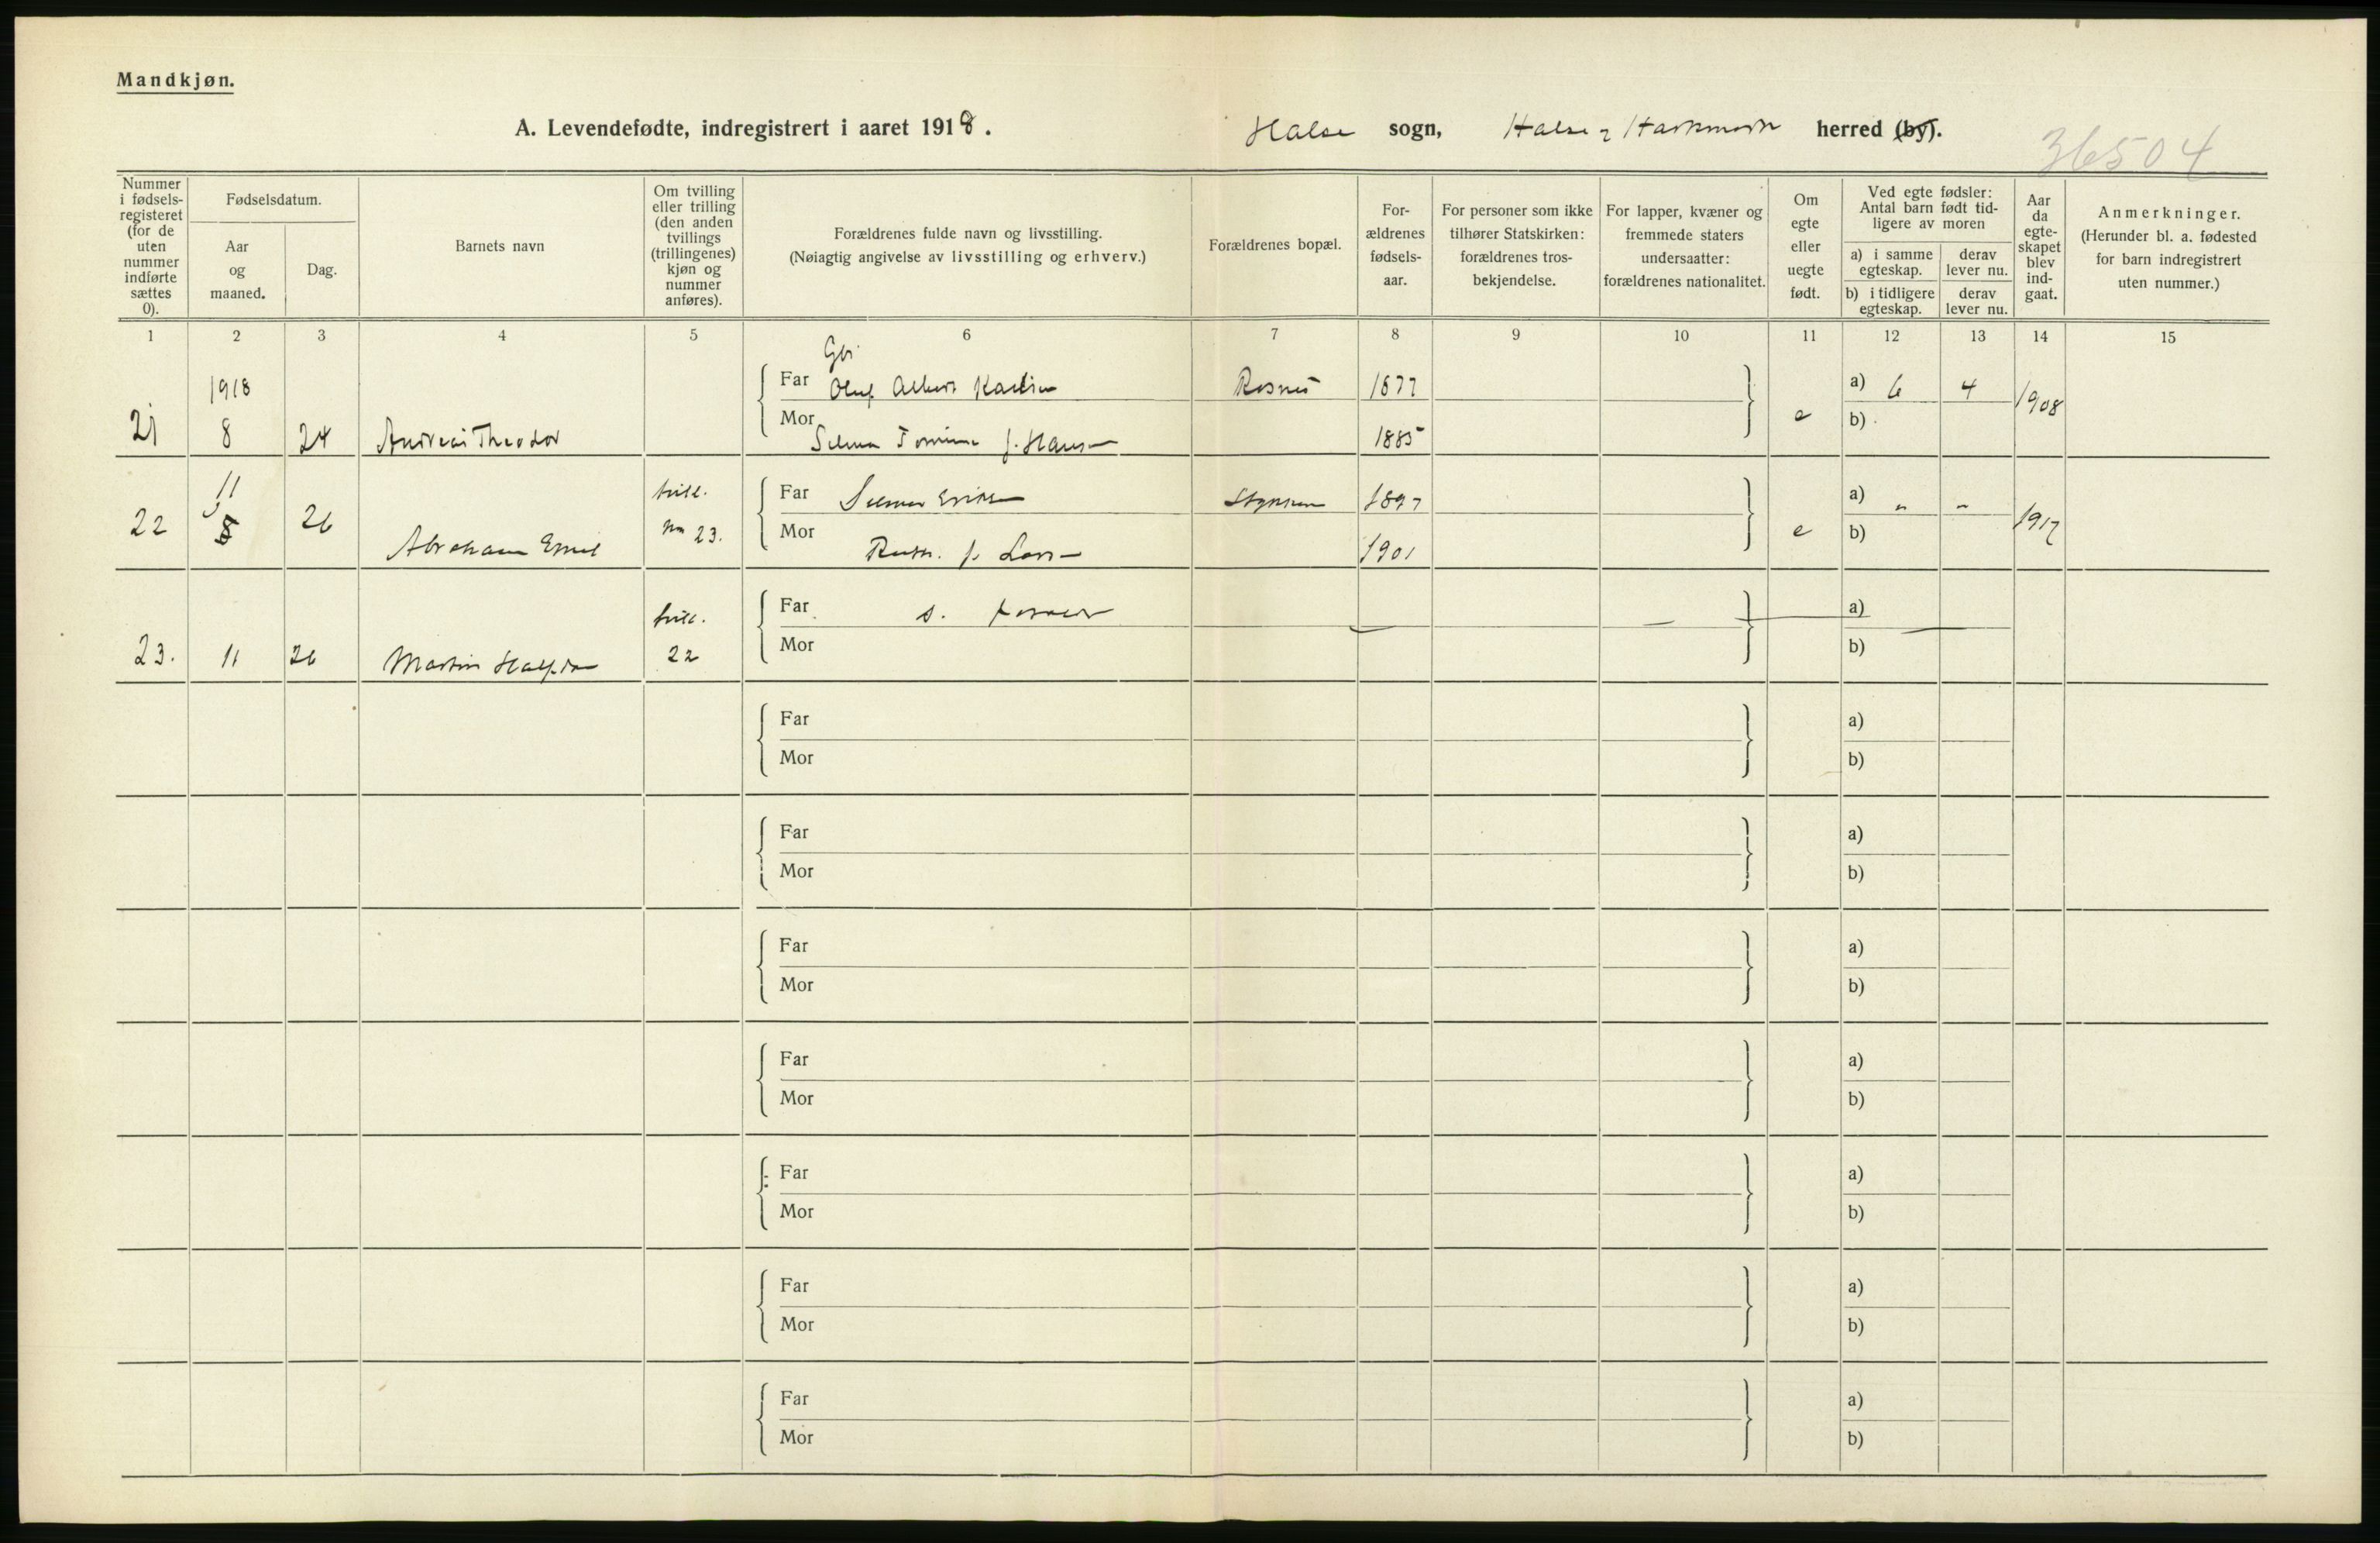 Mandkjøn.
A. Levendefødte, indregistrert i aaret 1918. Halse sogn, Halse & Harkmark herred (by).
36504
Nummer i fødsels-registeret (for de uten nummer indførte sættes 0).
Fødselsdatum.
Aar og maaned.
Dag.
Barnets navn
Om tvilling eller trilling (den anden tvillings (trillingenes) kjøn og nummer anføres).
Forældrenes fulde navn og livsstilling.
(Nøiagtig angivelse av livsstilling og erhverv.)
Forældrenes bopæl.
For-ældrenes fødsels-aar.
For personer som ikke tilhører Statskirken: forældrenes tros-bekjendelse.
For lapper, kvæner og fremmede staters undersaatter: forældrenes nationalitet.
Om egte eller uegte født.
Ved egte fødsler: Antal barn født tid-ligere av moren
a) i samme egteskap.
derav lever nu.
b) i tidligere egteskap.
derav lever nu.
Aar da egte-skapet blev ind-gaat.
Anmerkninger.
(Herunder bl. a. fødested for barn indregistrert uten nummer.)
1 2 3 4 5 6 7 8 9 10 11 12 13 14 15
1918
Far Oluf Albert 1877 a) 6 4 1908
21 8 24 Andreas Theodor Mor Selma f. Hansen 1885 e b)
11 tvill. Far Eriksen 1897 a) " "
22 8 26 Abraham Emil No 23. Mor f. Larsen 1901 e b) 1917
tvill. Far s. forrige a)
23. 11 26 Martin Halfdan 22 Mor b)
Far a)
Mor b)
Far a)
Mor b)
Far a)
Mor b)
Far a)
Mor b)
Far a)
Mor b)
Far a)
Mor b)
Far a)
Mor b)